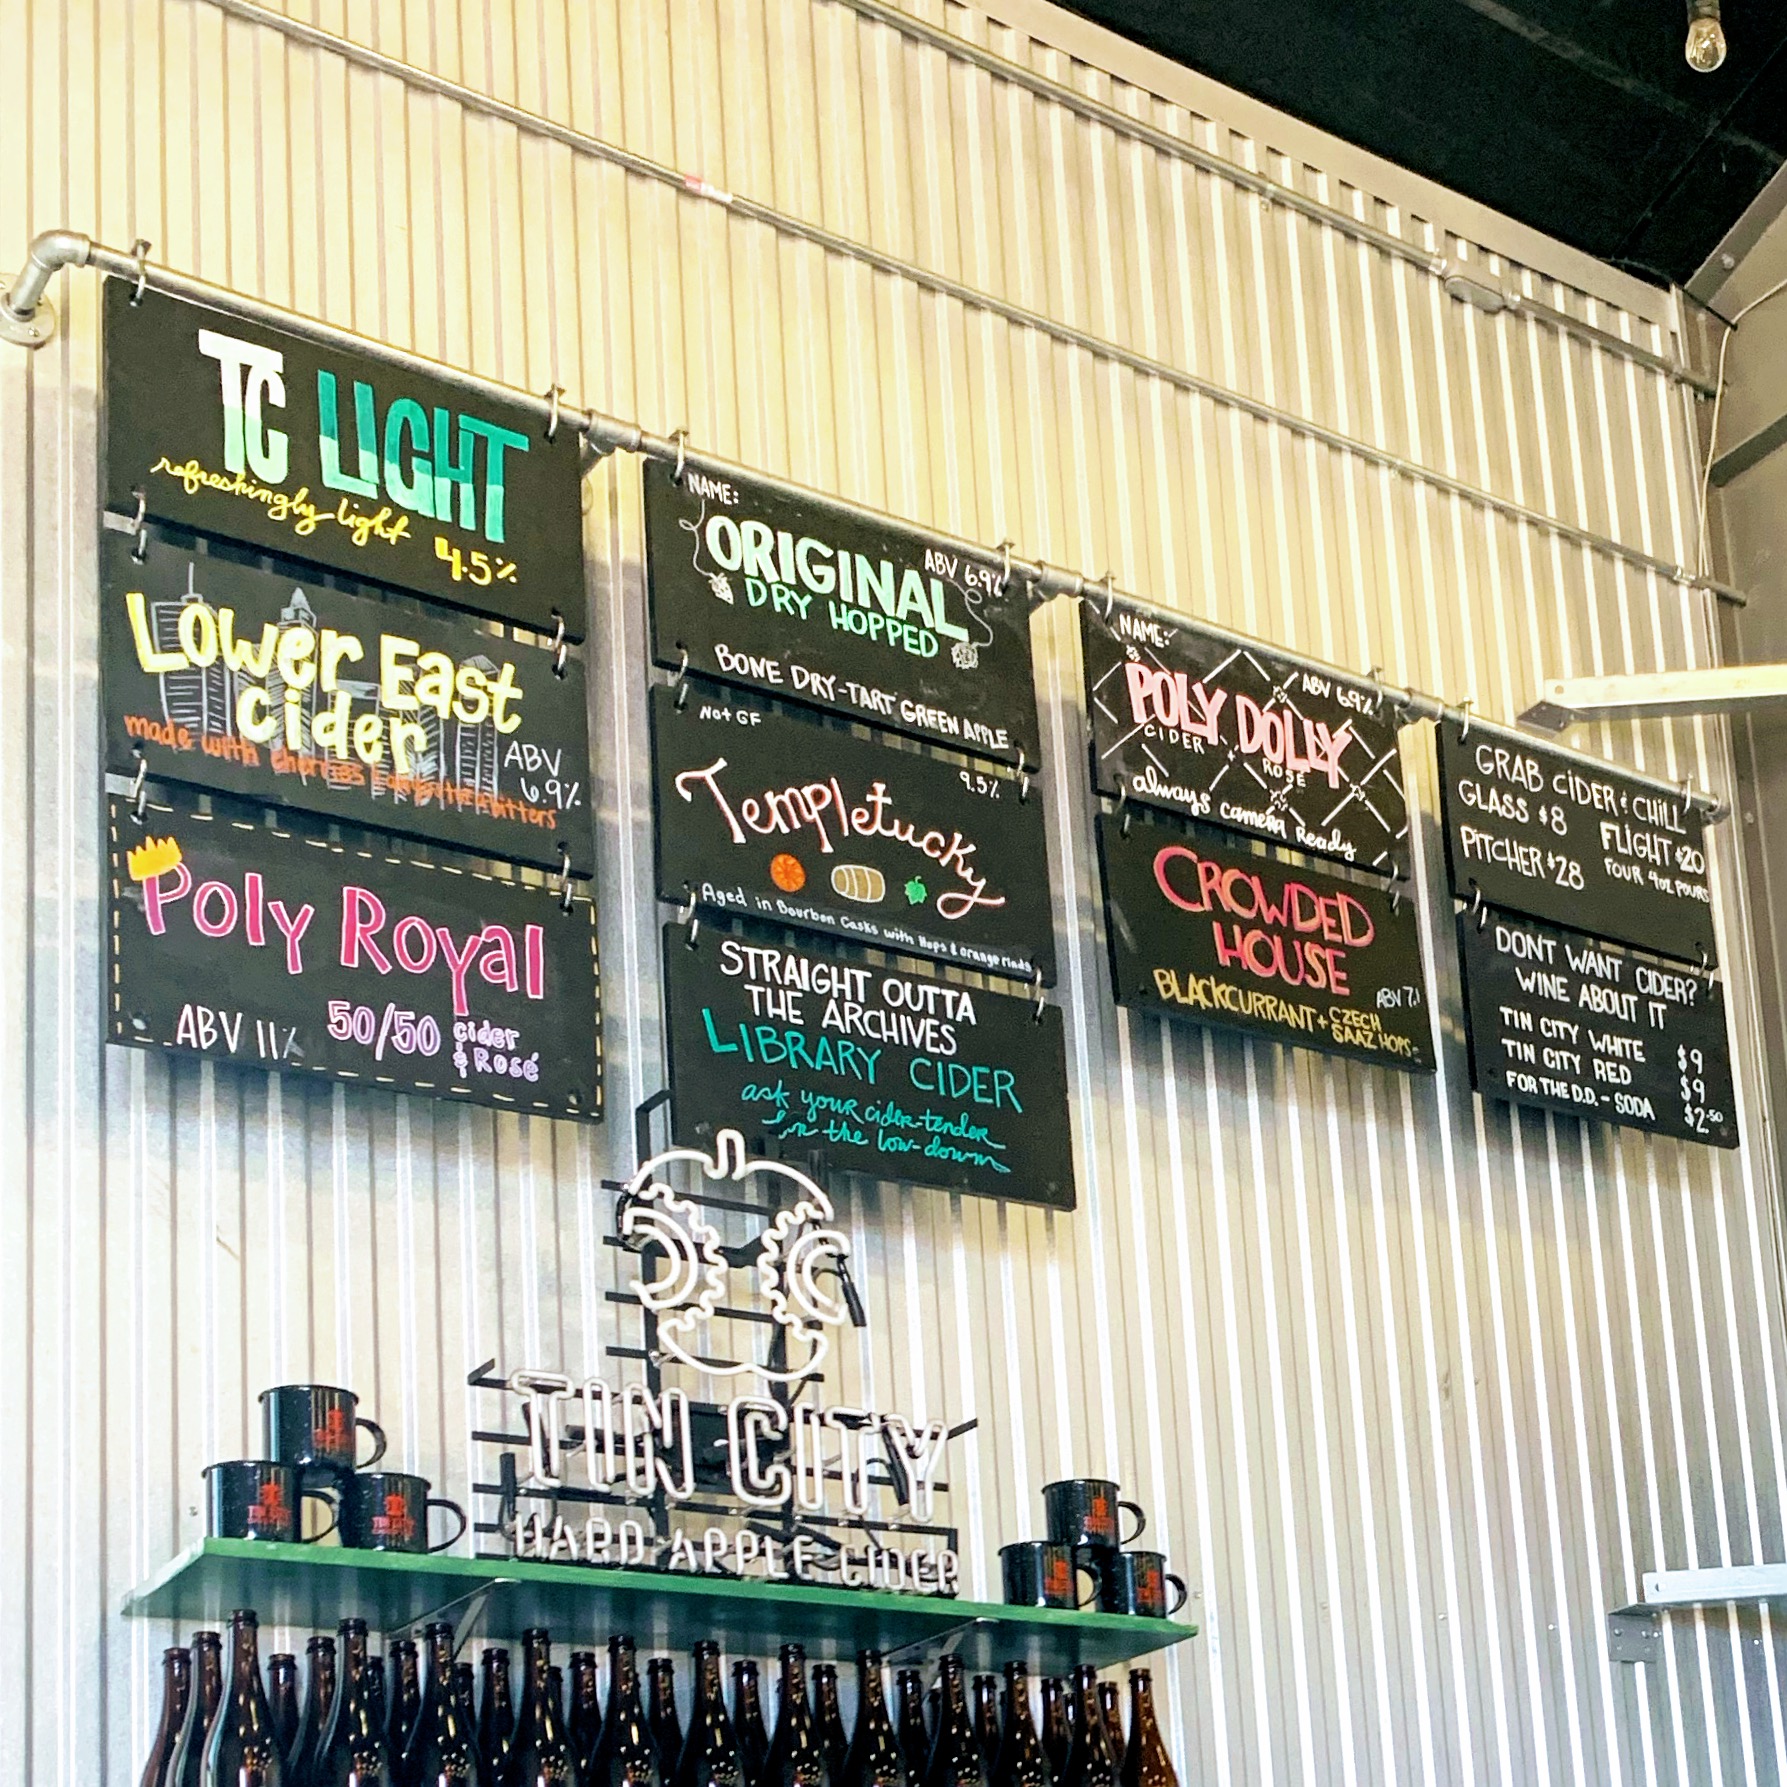 TC LIGHT
refreshingly light
4.5%
Lower East
Cider
made with cherries
bitters
ABV
6.9%
Poly Royal
ABV 11%
50/50
Cider
& Rosé
NAME:
ORIGINAL
ABV 6.9%
DRY HOPPED
BONE DRY-TART GREEN APPLE
Not GF
9.5%
Templetucky
Aged in Bourbon Casks with Hops & orange rinds
STRAIGHT OUTTA
THE ARCHIVES
LIBRARY CIDER
ask your cider-tender
on the low-down
NAME:
ABV 6.9%
POLY DOLLY
CIDER
ROSE
always camera Ready
CROWDED
HOUSE
ABV 7.1
BLACKCURRANT + CZECH
SAAZ HOPS
GRAB CIDER & CHILL
GLASS $8
FLIGHT $20
PITCHER $28
FOUR 4oz POURS
DONT WANT CIDER?
WINE ABOUT IT
TIN CITY WHITE $9
TIN CITY RED $9
FOR THE D.D. - SODA $2.50
TIN CITY
HARD APPLE CIDER